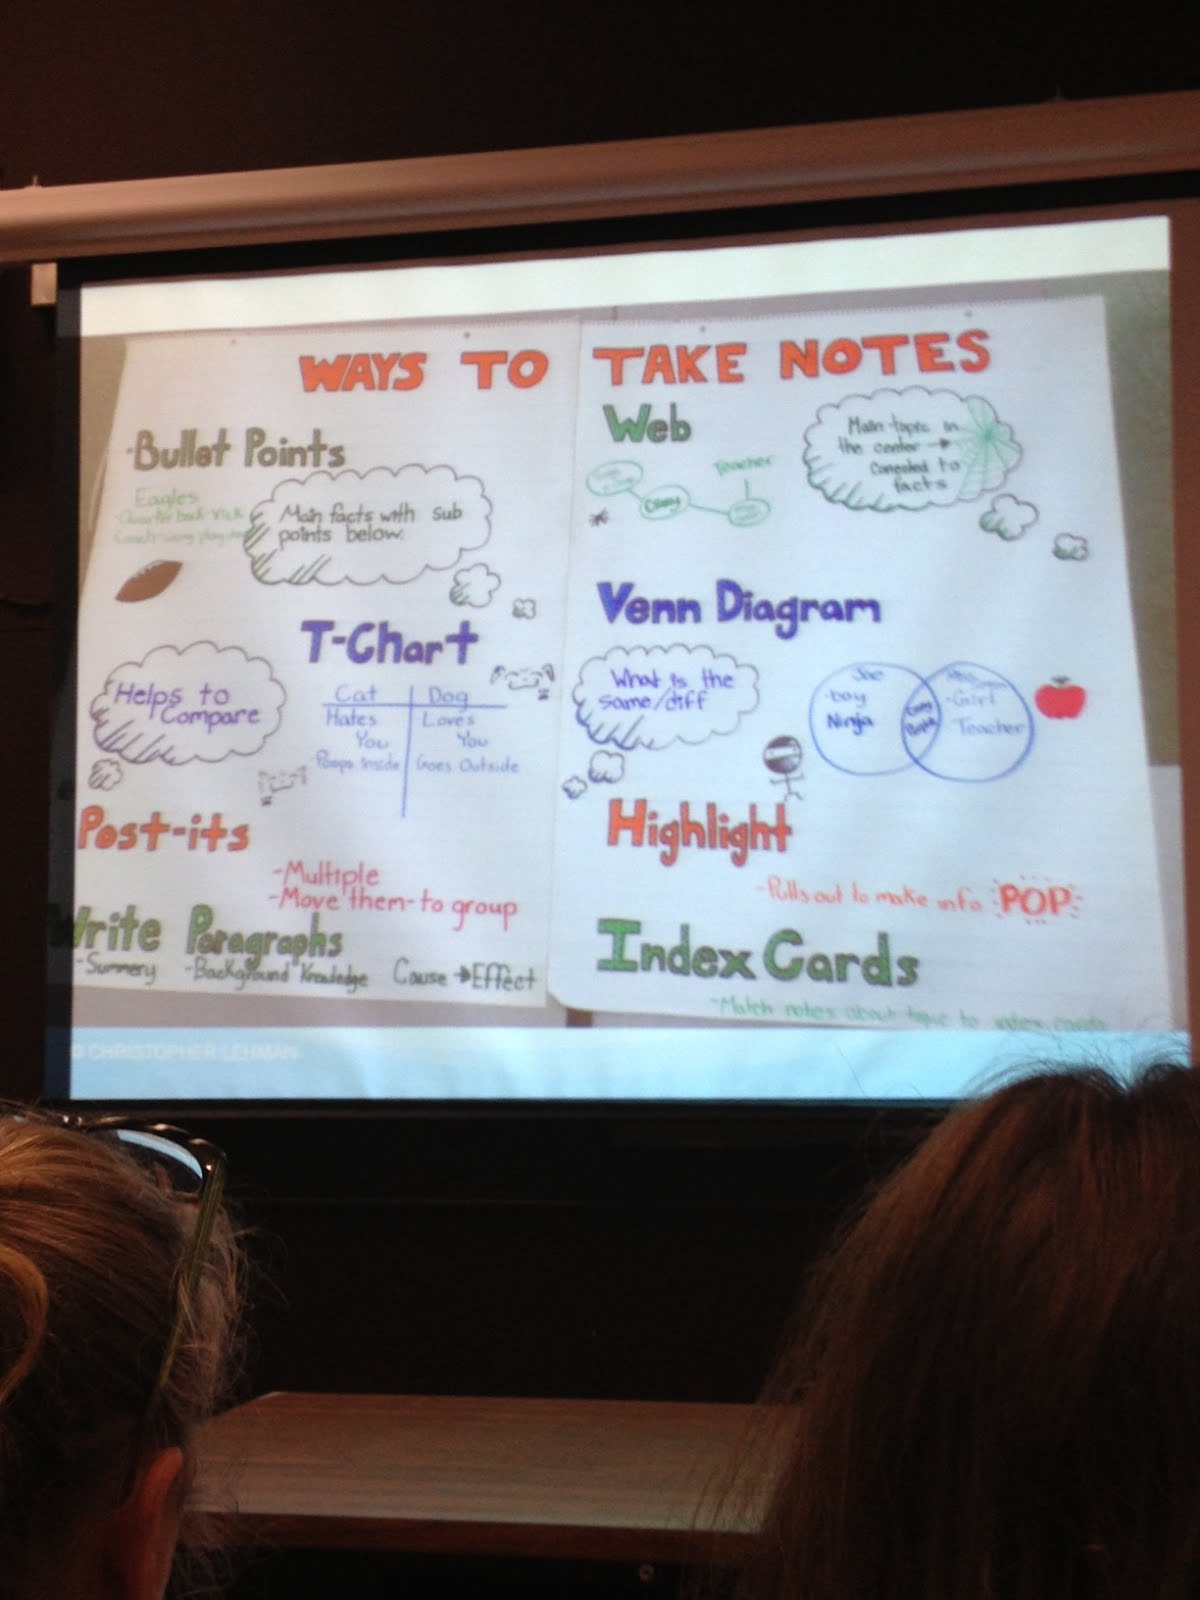 WAYS TO TAKE NOTES
-Bullet Points
Eagles
Main facts with sub
points below.
T-Chart
Helps to
Compare
Cat Dog
Hates Loves
You You
Poops Inside Goes Outside
Post-its
-Multiple
-Move them-to group
Write Paragraphs
-Summery -Background Knowledge Cause → Effect
Web
Main topic in
the center →
Conected to
facts
Teacher
Venn Diagram
What is the
same/diff
Joe
-boy
Ninja
-Girl
Teacher
Highlight
-Pulls out to make info POP
Index Cards
-Match notes about topic to index cards
© CHRISTOPHER LEHMAN